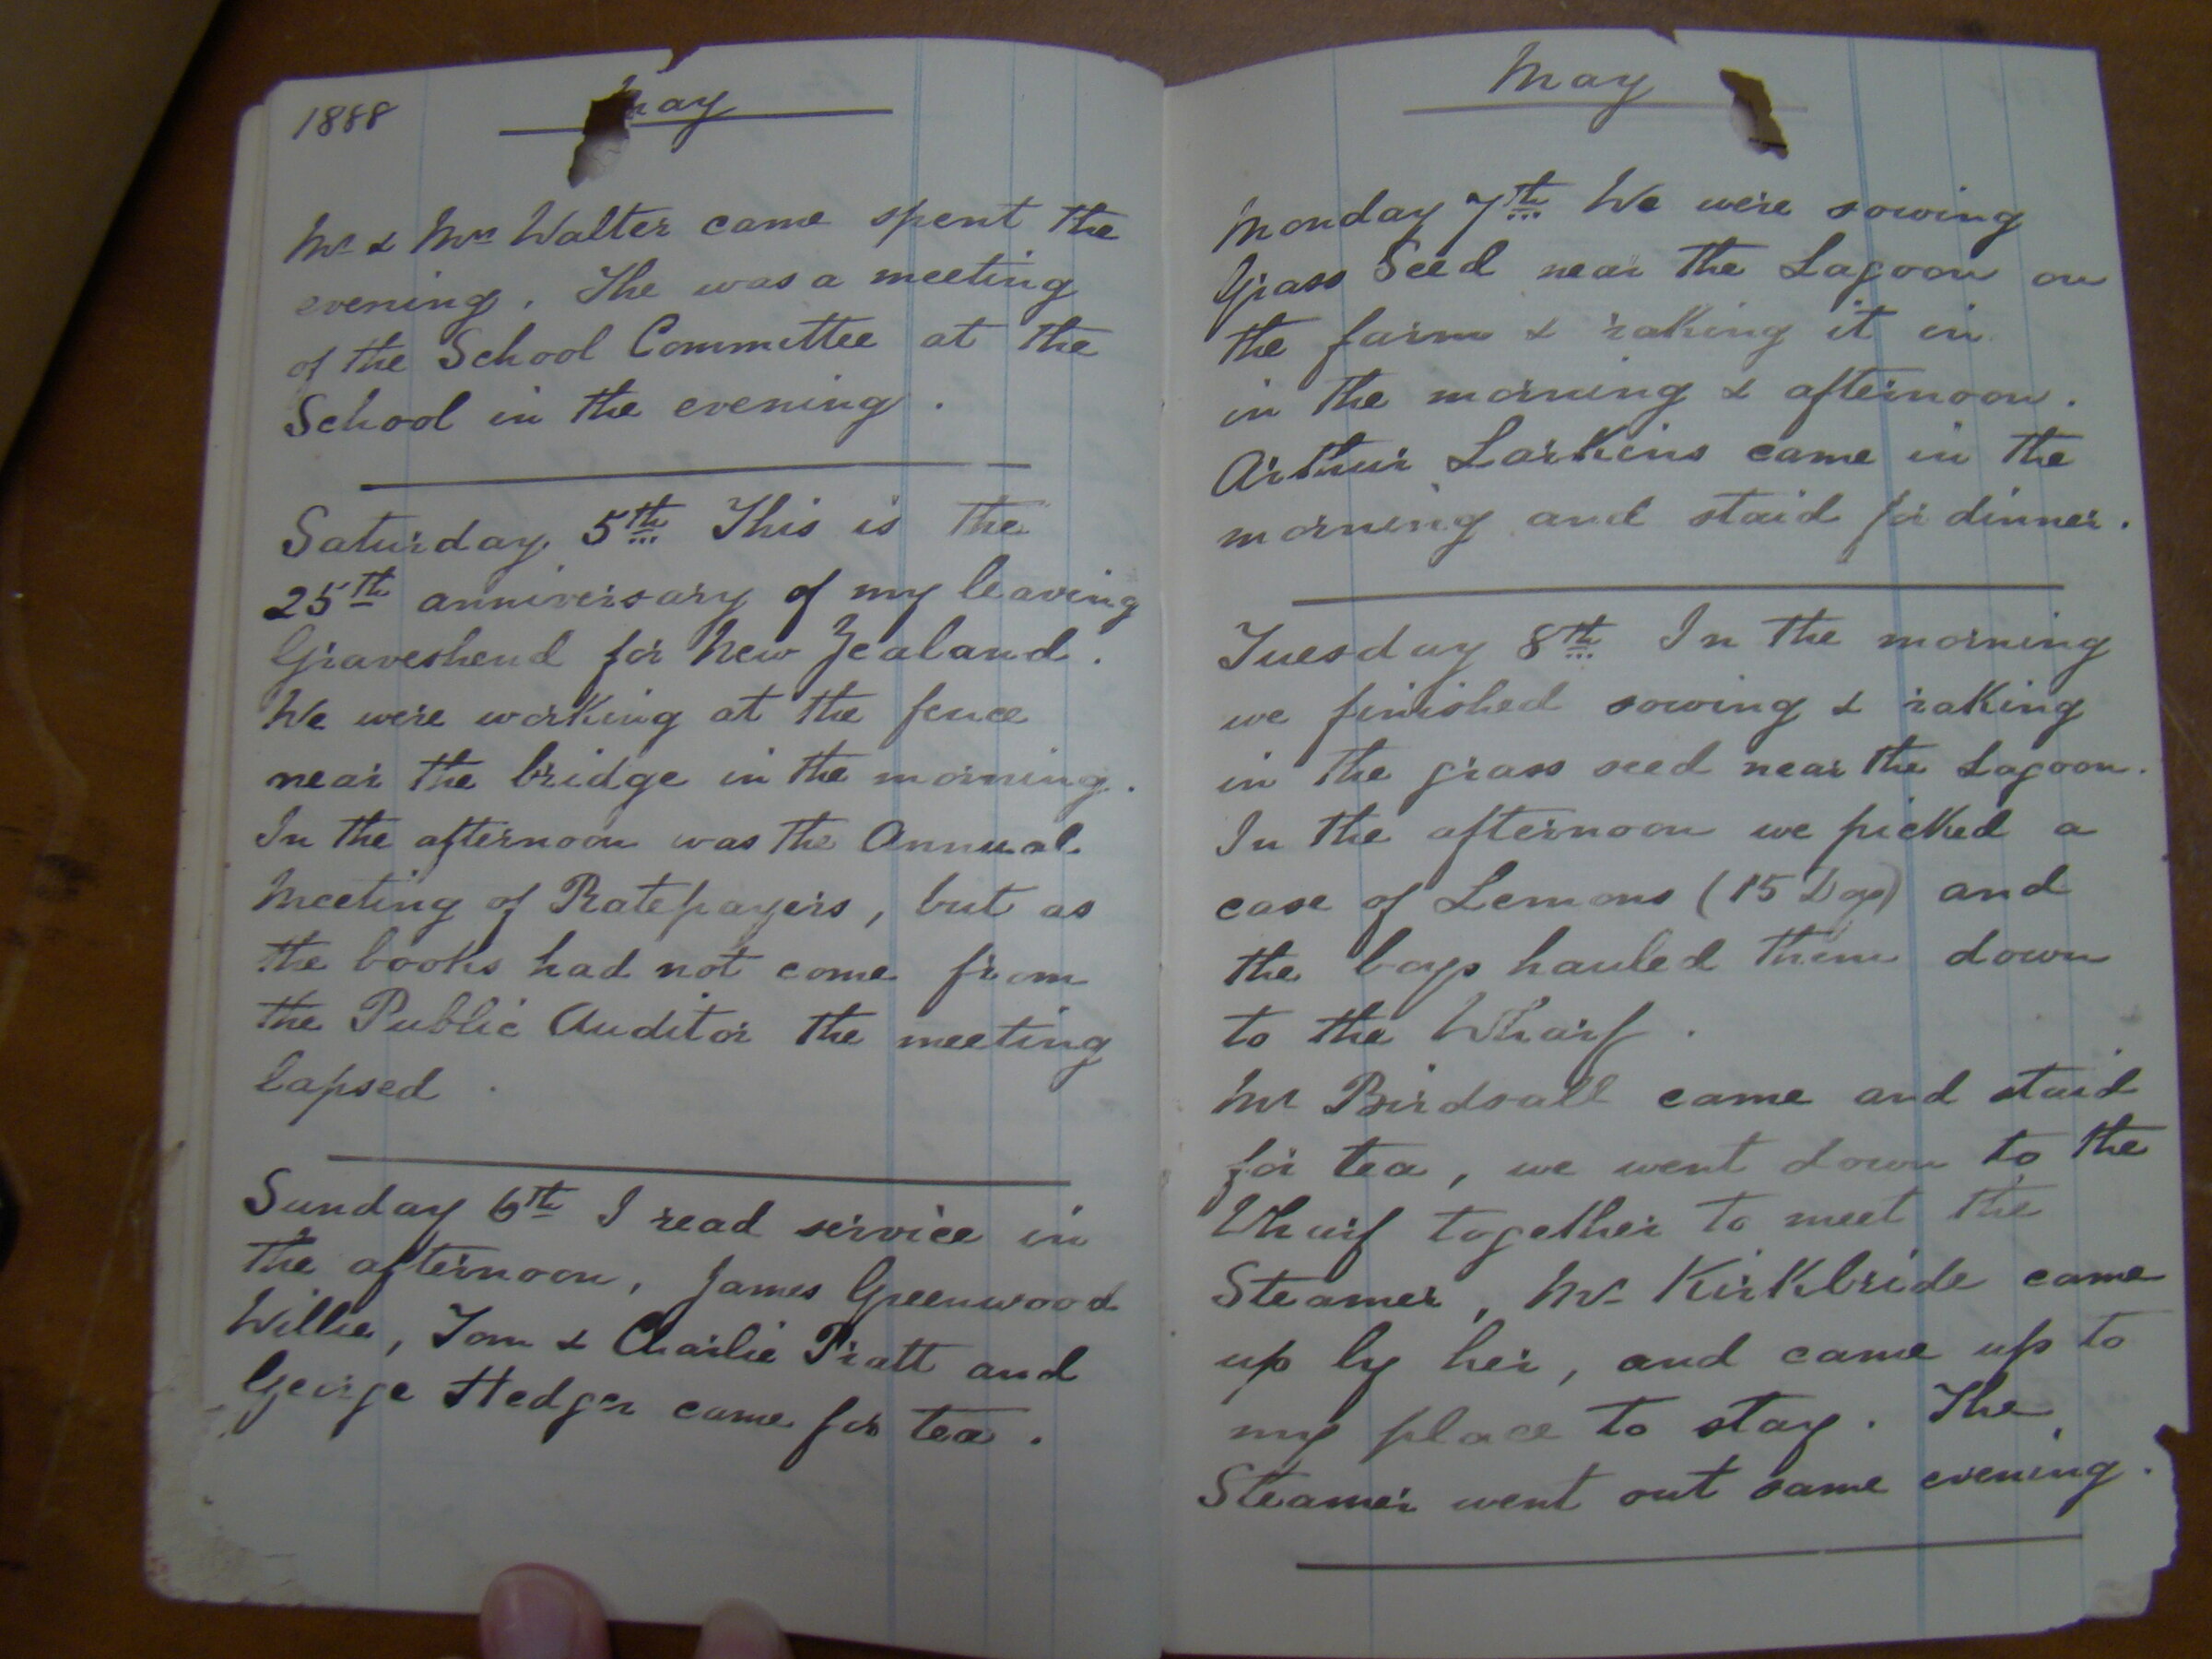 1888
May
Mr & Mrs Walter came spent the
evening. The was a meeting
of the School Committee at the
School in the evening.
Saturday 5th This is the
25th anniversary of my leaving
Graveshend for New Zealand.
We were working at the fence
near the bridge in the morning.
In the afternoon was the Annual
Meeting of Ratepayers, but as
the books had not come from
the Public Auditor the meeting
lapsed.
Sunday 6th I read service in
the afternoon, James Greenwood
Willie, Tom & Charlie Pratt and
George Hedger came for tea.
May
Monday 7th We were sowing
Grass Seed near the Lagoon on
the farm & raking it in
in the morning & afternoon.
Arthur Larkins came in the
morning and staid for dinner.
Tuesday 8th In the morning
we finished sowing & raking
in the grass seed near the Lagoon.
In the afternoon we picked a
case of Lemons (15 Dozs) and
the boys hauled them down
to the Wharf.
Mr Birdsall came and staid
for tea, we went down to the
Wharf together to meet the
Steamer, Mr Kirkbride came
up by her, and came up to
my place to stay. The
Steamer went out same evening.